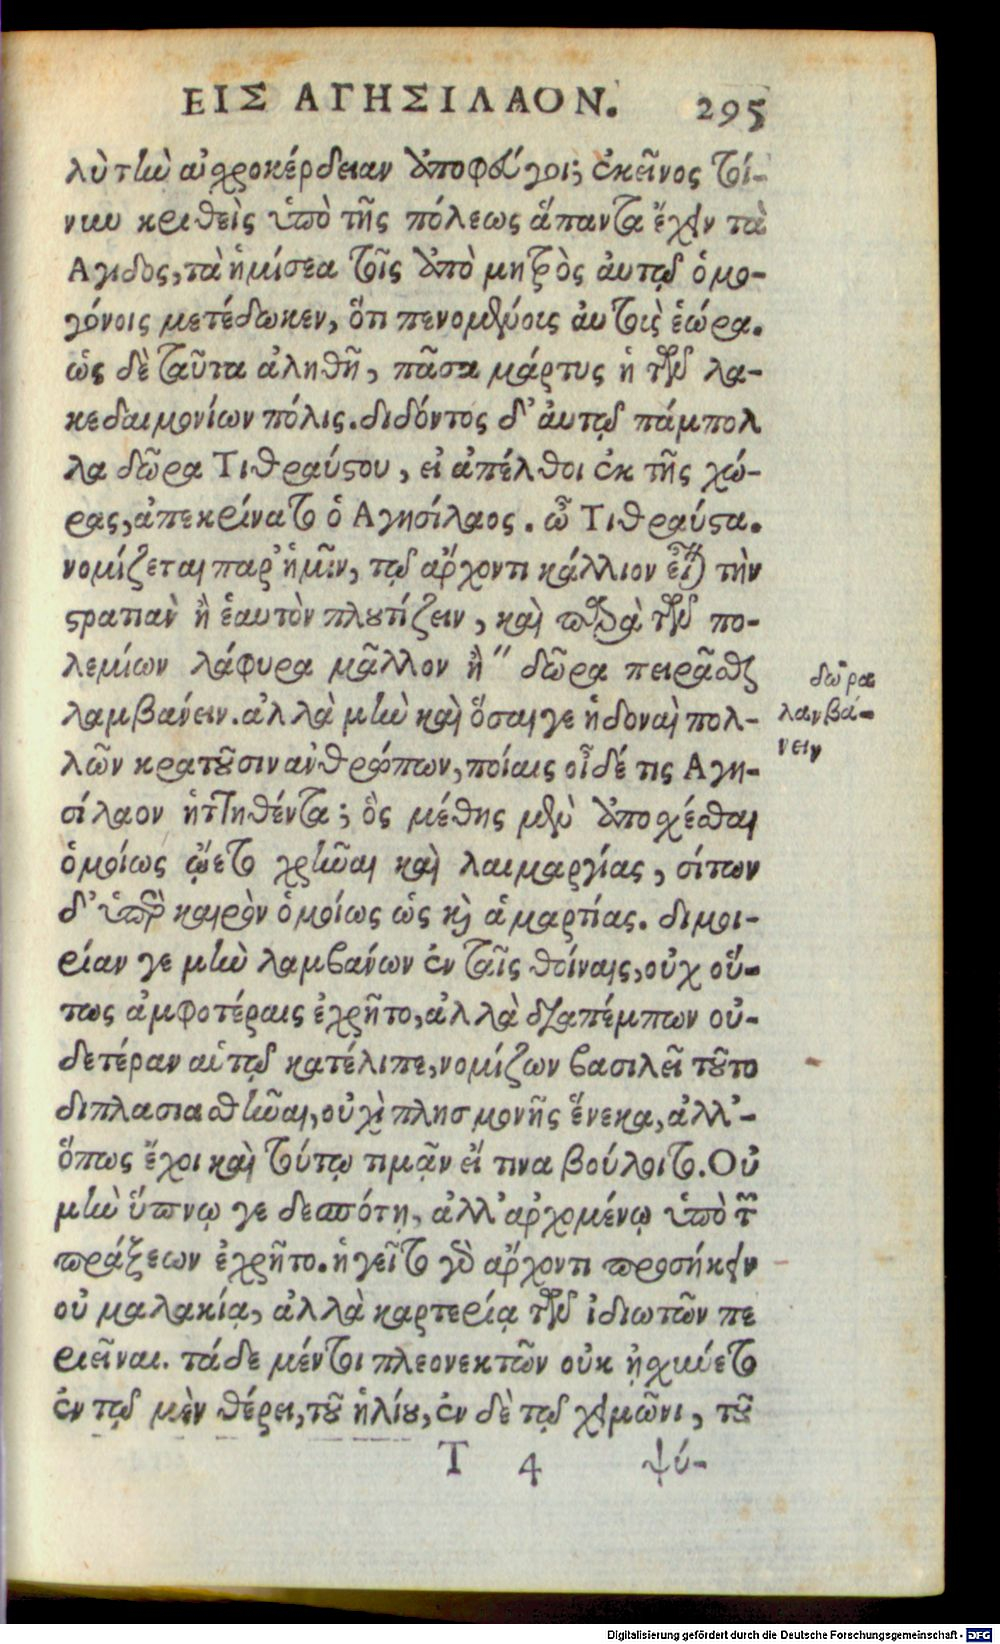 ΕΙΣ ΑΓΗΣΙΛΑΟΝ. 295
λὺ τὴν αἰχροκέρδειαν ἀποφεύγοι; ἐκεῖνος τοί-
νυν κριθεὶς ὑπὸ τῆς πόλεως ἅπαντα ἔχειν τὰ
Αγιδος, τὰ ἡμίσεα τοῖς ἀπὸ μητρὸς αὐτῷ ὁμο-
γόνοις μετέδωκεν, ὅτι πενομένοις αὐτοὺς ἑώρα.
ὡς δὲ ταῦτα ἀληθῆ, πᾶσα μάρτυς ἡ τῶν λα-
κεδαιμονίων πόλις. διδόντος δ' αὐτῷ πάμπολ
λα δῶρα Τιθραύστου, εἰ ἀπέλθοι ἐκ τῆς χώ-
ρας, ἀπεκρίνατο ὁ Αγησίλαος. ὦ Τιθραύστα.
νομίζεται παρ' ἡμῖν, τῷ ἄρχοντι κάλλιον εἶναι τὴν
στρατιὰν ἢ ἑαυτὸν πλουτίζειν, καὶ παρὰ τῶν πο-
λεμίων λάφυρα μᾶλλον ἢ " δῶρα πειρᾶσθαι
λαμβάνειν. ἀλλὰ μὴν καὶ ὅσαι γε ἡδοναὶ πολ-
λῶν κρατοῦσιν ἀνθρώπων, ποίαις οἶδέ τις Αγη-
σίλαον ἡττηθέντα; ὃς μέθης μὲν ἀποχέσθαι
ὁμοίως ᾤετο χρῆναι καὶ λαιμαργίας, σίτων
δ' ὑπὲρ καιρὸν ὁμοίως ὡς καὶ ἁμαρτίας. διμοι-
ρίαν γε μὴν λαμβάνων ἐν ταῖς θοίναις, οὐχ οὕ-
τως ἀμφοτέραις ἐχρῆτο, ἀλλὰ διαπέμπων οὐ-
δετέραν αὑτῷ κατέλιπε, νομίζων βασιλεῖ τοῦτο
διπλασιασθῆναι, οὐχὶ πλησμονῆς ἕνεκα, ἀλλ'-
ὅπως ἔχοι καὶ τούτῳ τιμᾷν εἴ τινα βούλοιτο. Οὐ
μὴν ὕπνῳ γε δεσπότῃ, ἀλλ' ἀρχομένῳ ὑπὸ τῶν
πράξεων ἐχρῆτο. ἡγεῖτο γὰρ ἄρχοντι προσήκειν
οὐ μαλακίᾳ, ἀλλὰ καρτερίᾳ τῶν ἰδιωτῶν πε
ριεῖναι. τάδε μέντοι πλεονεκτῶν οὐκ ᾐχύνετο
ἐν τῷ μὲν θέρει, τοῦ ἡλίου, ἐν δὲ τῷ χειμῶνι, τοῦ
Τ 4 ψύ-
δῶρα
λανβά-
νειν
Digitalisierung gefördert durch die Deutsche Forschungsgemeinschaft - DFG